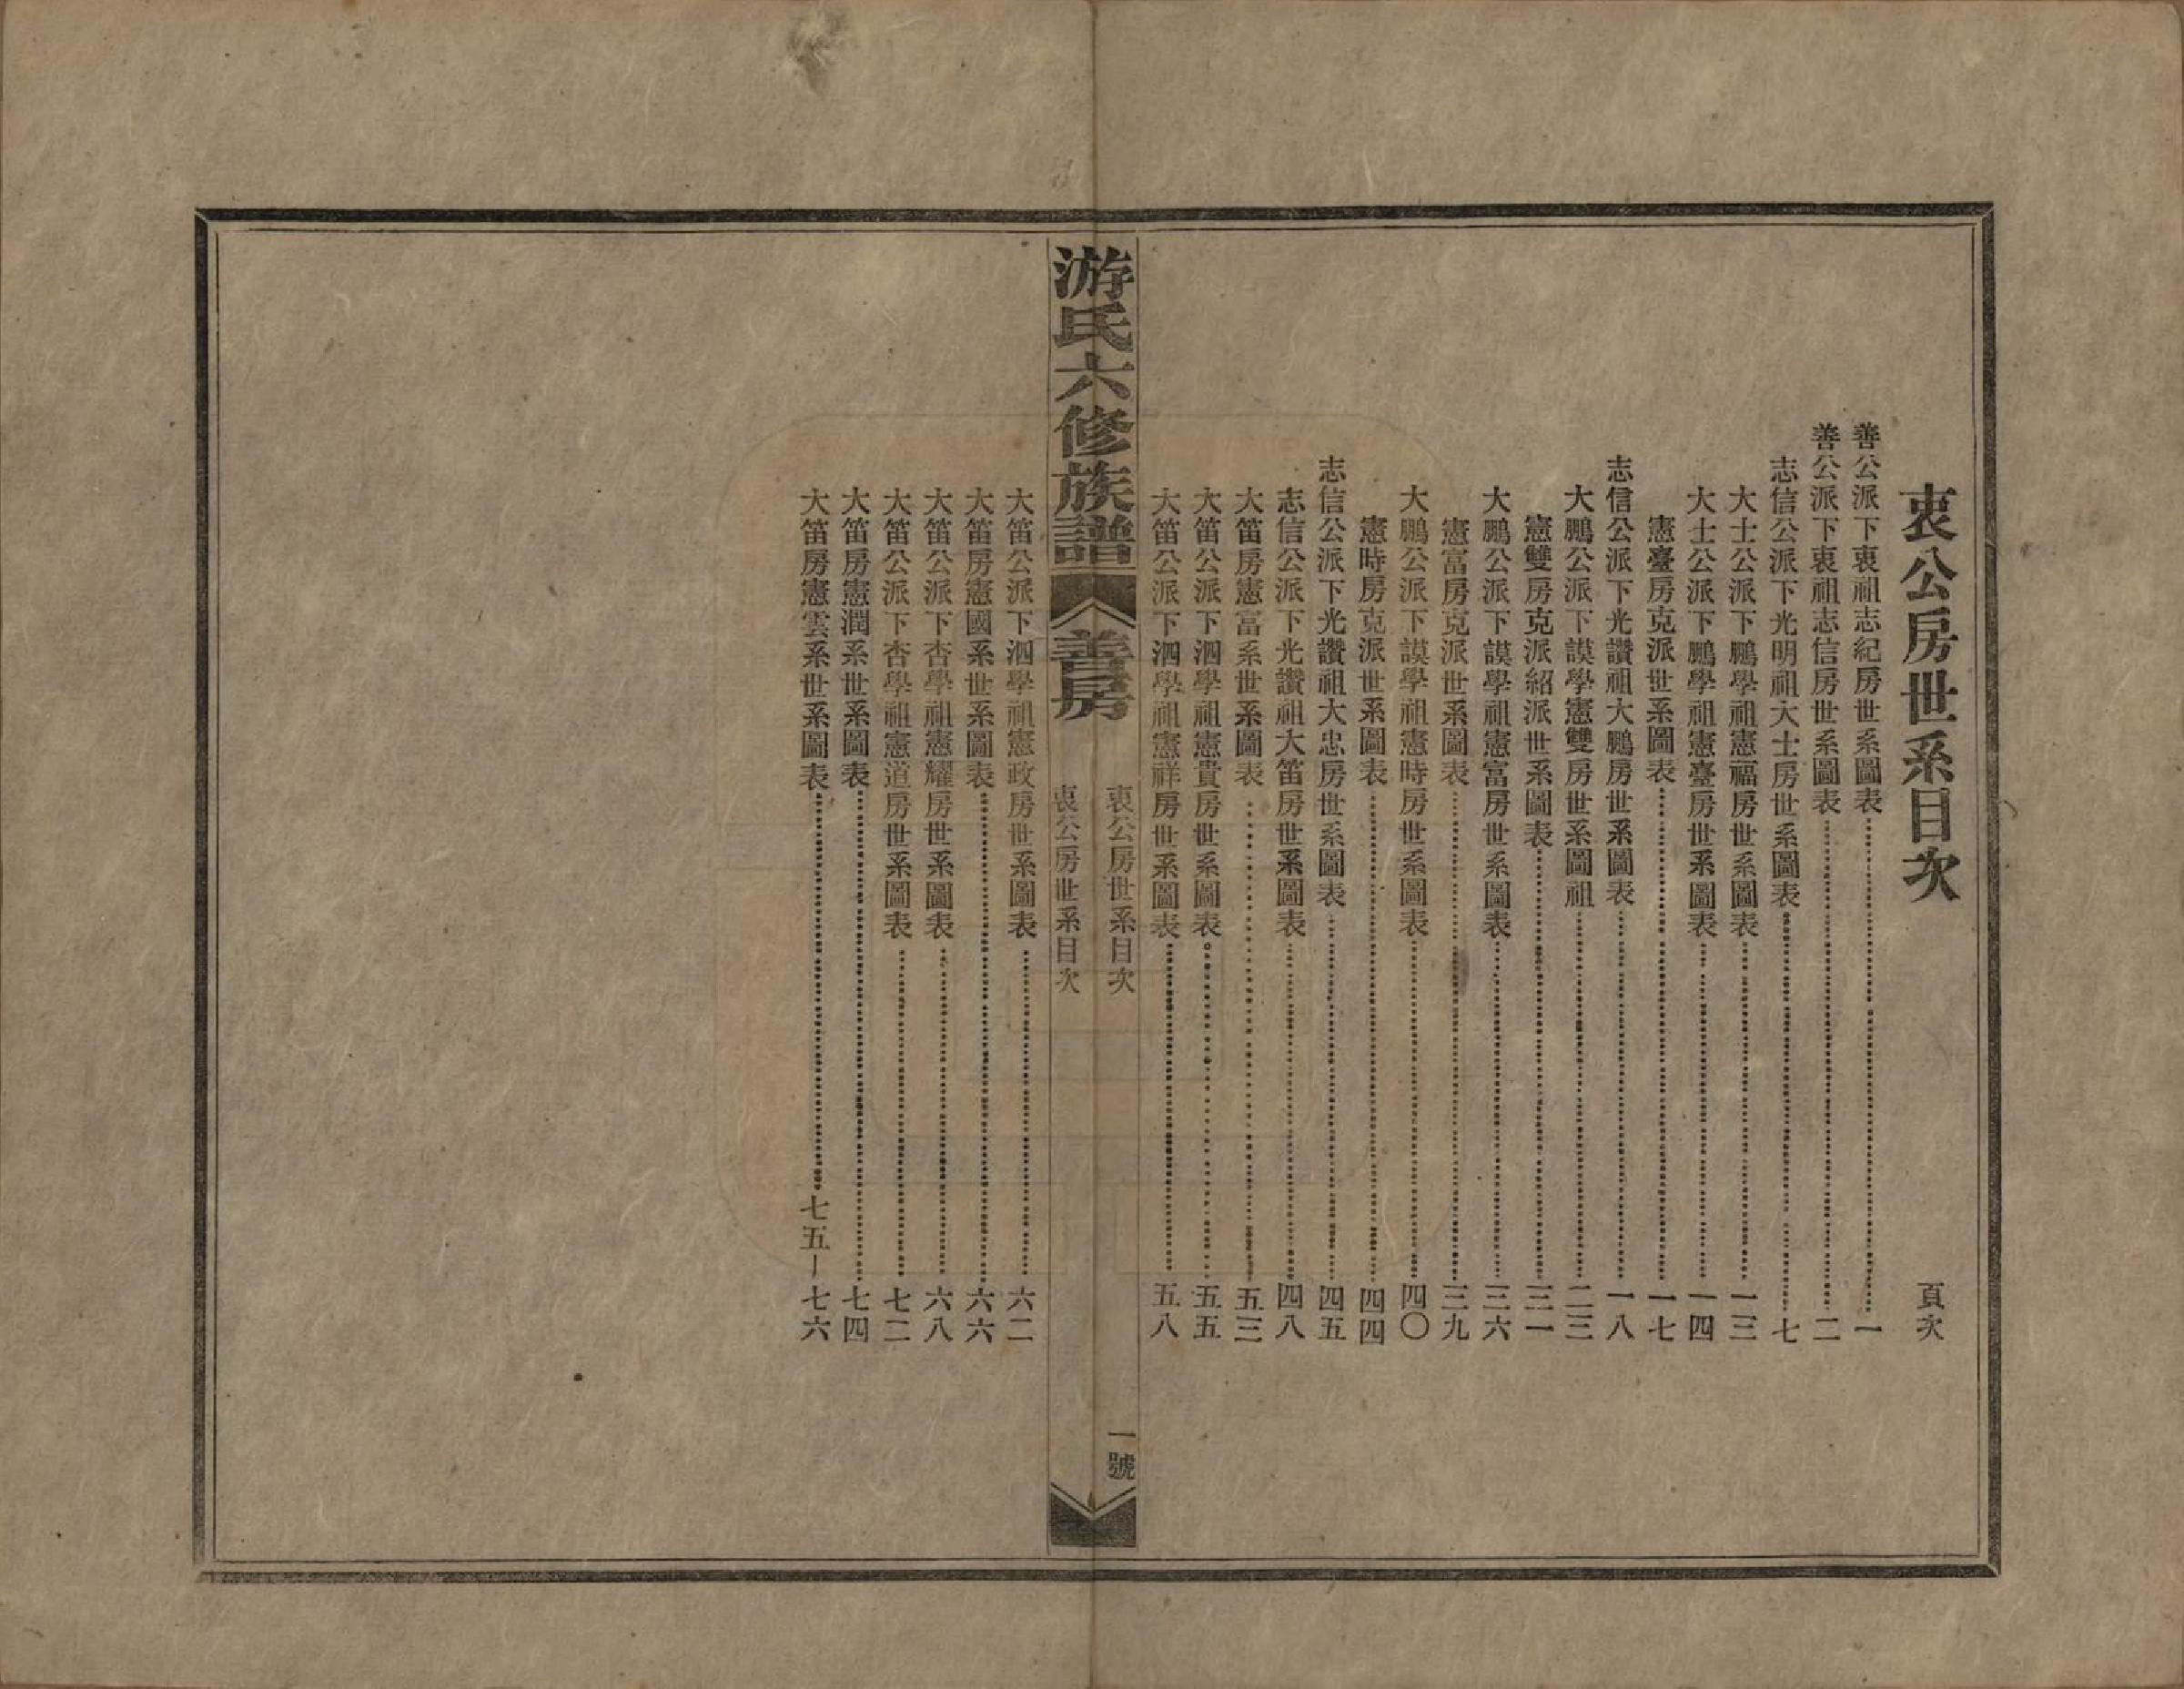 衷公房世系目次　頁次
善公派下衷祖志紀房世系圖表……一
善公派下衷祖志信房世系圖表……二
志信公派下光明祖大士房世系圖表……七
大士公派下鵬學祖憲福房世系圖表……一三
大士公派下鵬學祖憲臺房世系圖表……一四
憲臺房克派世系圖表……一七
志信公派下光讚祖大鵬房世系圖表……一八
大鵬公派下謨學憲雙房世系圖祖……二三
憲雙房克派紹派世系圖表……三一
大鵬公派下謨學祖憲富房世系圖表……三六
憲富房克派世系圖表……三九
大鵬公派下謨學祖憲時房世系圖表……四〇
憲時房克派世系圖表……四四
志信公派下光讚祖大忠房世系圖表……四五
志信公派下光讚祖大笛房世系圖表……四八
大笛房憲富系世系圖表……五三
大笛公派下泗學祖憲貴房世系圖表……五五
大笛公派下泗學祖憲祥房世系圖表……五八
游氏六修族譜　善房
衷公房世系目次　一號
衷公房世系目次
大笛公派下泗學祖憲政房世系圖表……六二
大笛房憲國系世系圖表……六六
大笛公派下杏學祖憲耀房世系圖表……六八
大笛公派下杏學祖憲道房世系圖表……七二
大笛房憲潤系世系圖表……七四
大笛房憲雲系世系圖表……七五－七六